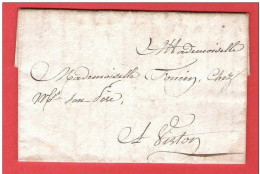 Mademoiselle
Mademoiselle Fourier, chez
Mr. son Père,
A Virton